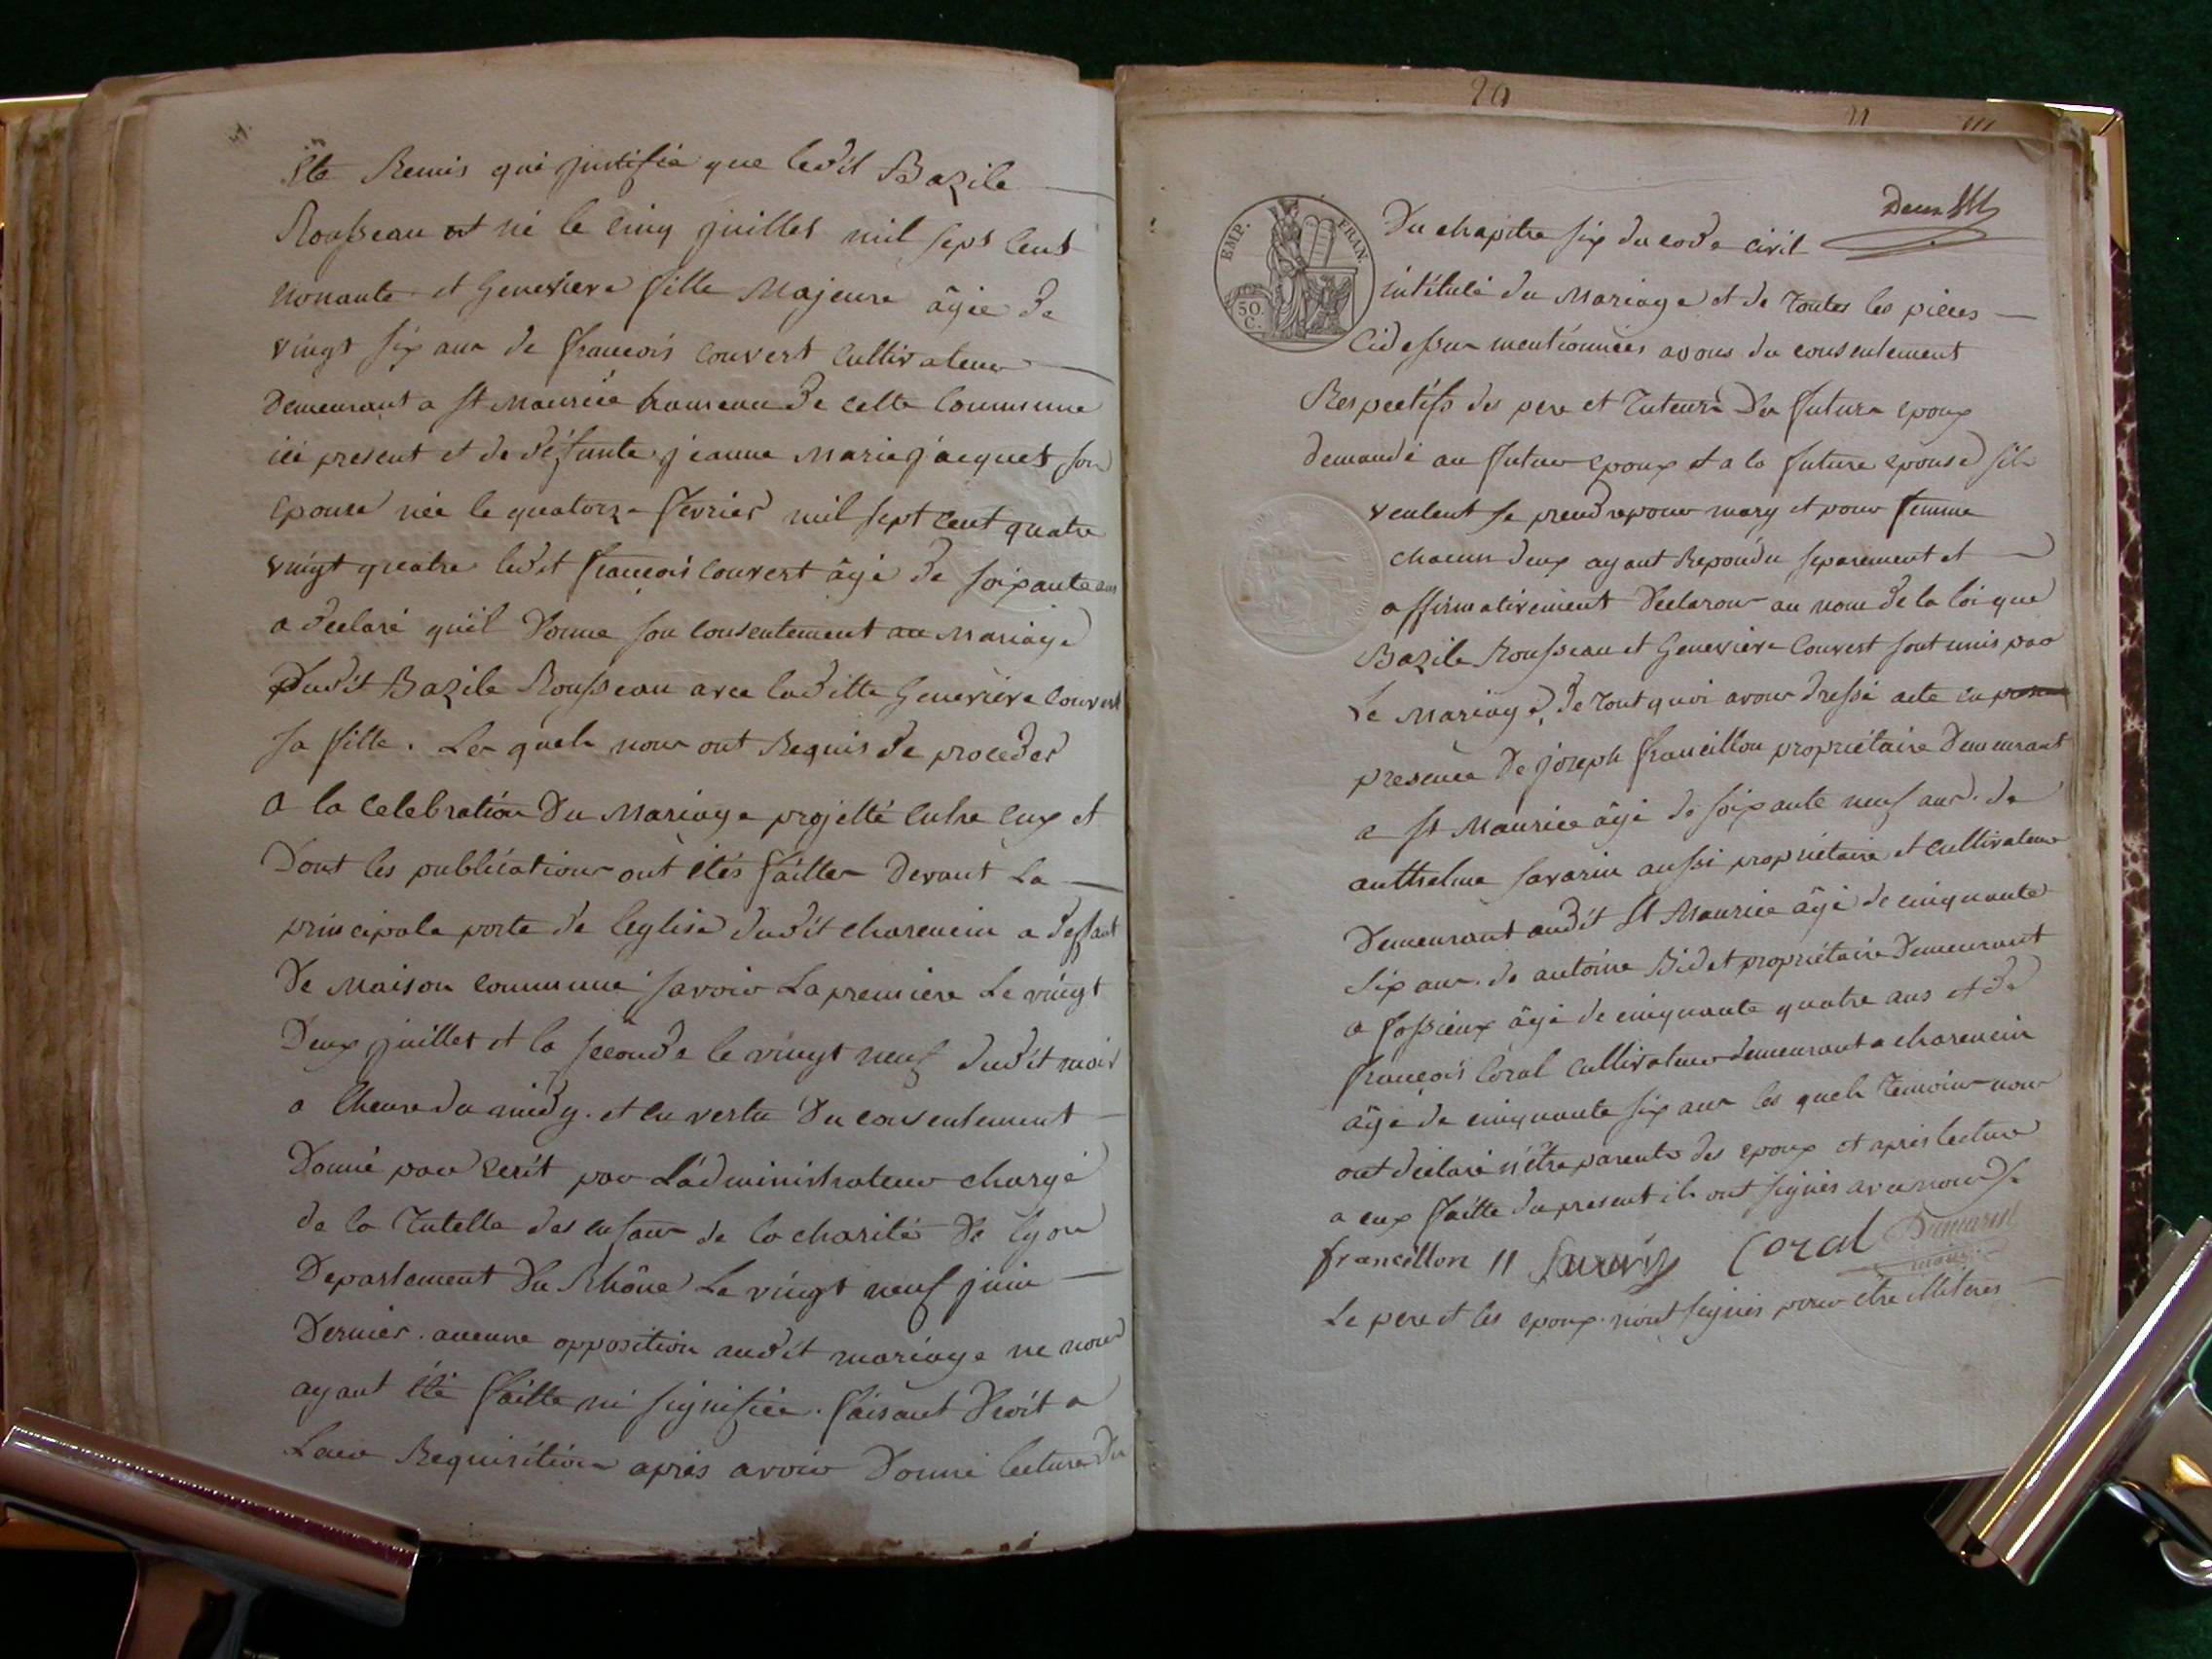 été Remis qui justifie que ledit Bazile
Rousseau est né le cinq juillet mil sept cent
nonante et Genevieve fille Majeure âgée de
vingt six ans de françois Couvert Cultivateur
Demeurant a St Maurice hameau de cette Commune
ici present et de défunte jeanne Marie jacquet son
Epouse née le quatorze fevrier mil sept cent quatre
vingt quatre ledit françois Couvert âgé de soixante ans
a declaré quil Donne son consentement au Mariage
Dudit Bazile Rousseau avec laditte Genevieve Couvert
sa fille. Les quels nous ont Requis de proceder
a la celebration Du Mariage projetté entre eux et
Dont les publications ont étés faittes Devant La
principale porte de leglise dudit charencin a deffaut
De Maison commune savoir La premiere Le vingt
Deux juillet et la seconde le vingt neuf dudit mois
a lheure du midy. et en vertu Du consentement
Donné par ecrit par L'administrateur chargé
de la Tutelle des enfans de la charité De lyon
Departement Du Rhône Le vingt neuf juin
Dernier. aucune opposition audit mariage ne nous
ayant été faitte ni signifiée. faisant Droit a
Leur Requisition après avoir Donné lecture Du
20
11
Du chapitre six du code civil
EMP. FRAN.
50. C.
intitulé du Mariage et de Toutes les pieces
Cidessus mentionnées avons du consentement
Respectifs des pere et Tuteurs Des futurs epoux
demandé au futur epoux et a la future epouse sils
veulent se prendre pour mary et pour femme
chacun deux ayant Repondu separement et
affirmativement Declarons au nom de la loi que
Bazile Rousseau et Genevieve Couvert sont unis par
Le Mariage, de Tout quoi avons dressé acte en
presence De joseph francillon propriétaire Demeurant
a St Maurice âgé de soixante neuf ans. de
anthelme savarin aussi propriétaire et cultivateur
Demeurant audit St Maurice âgé de cinquante
six ans. de antoine Bidet propriétaire Demeurant
a fossieux âgé de cinquante quatre ans et de
françois Coral Cultivateur demeurant a charencin
âgé de cinquante six ans les quels Temoins nous
ont déclaré n'être parents des epoux et après lecture
a eux faitte du present ils ont signés avec nous
francillon Savarin Coral
maire
Le pere et les epoux n'ont signés pour etre illiterés